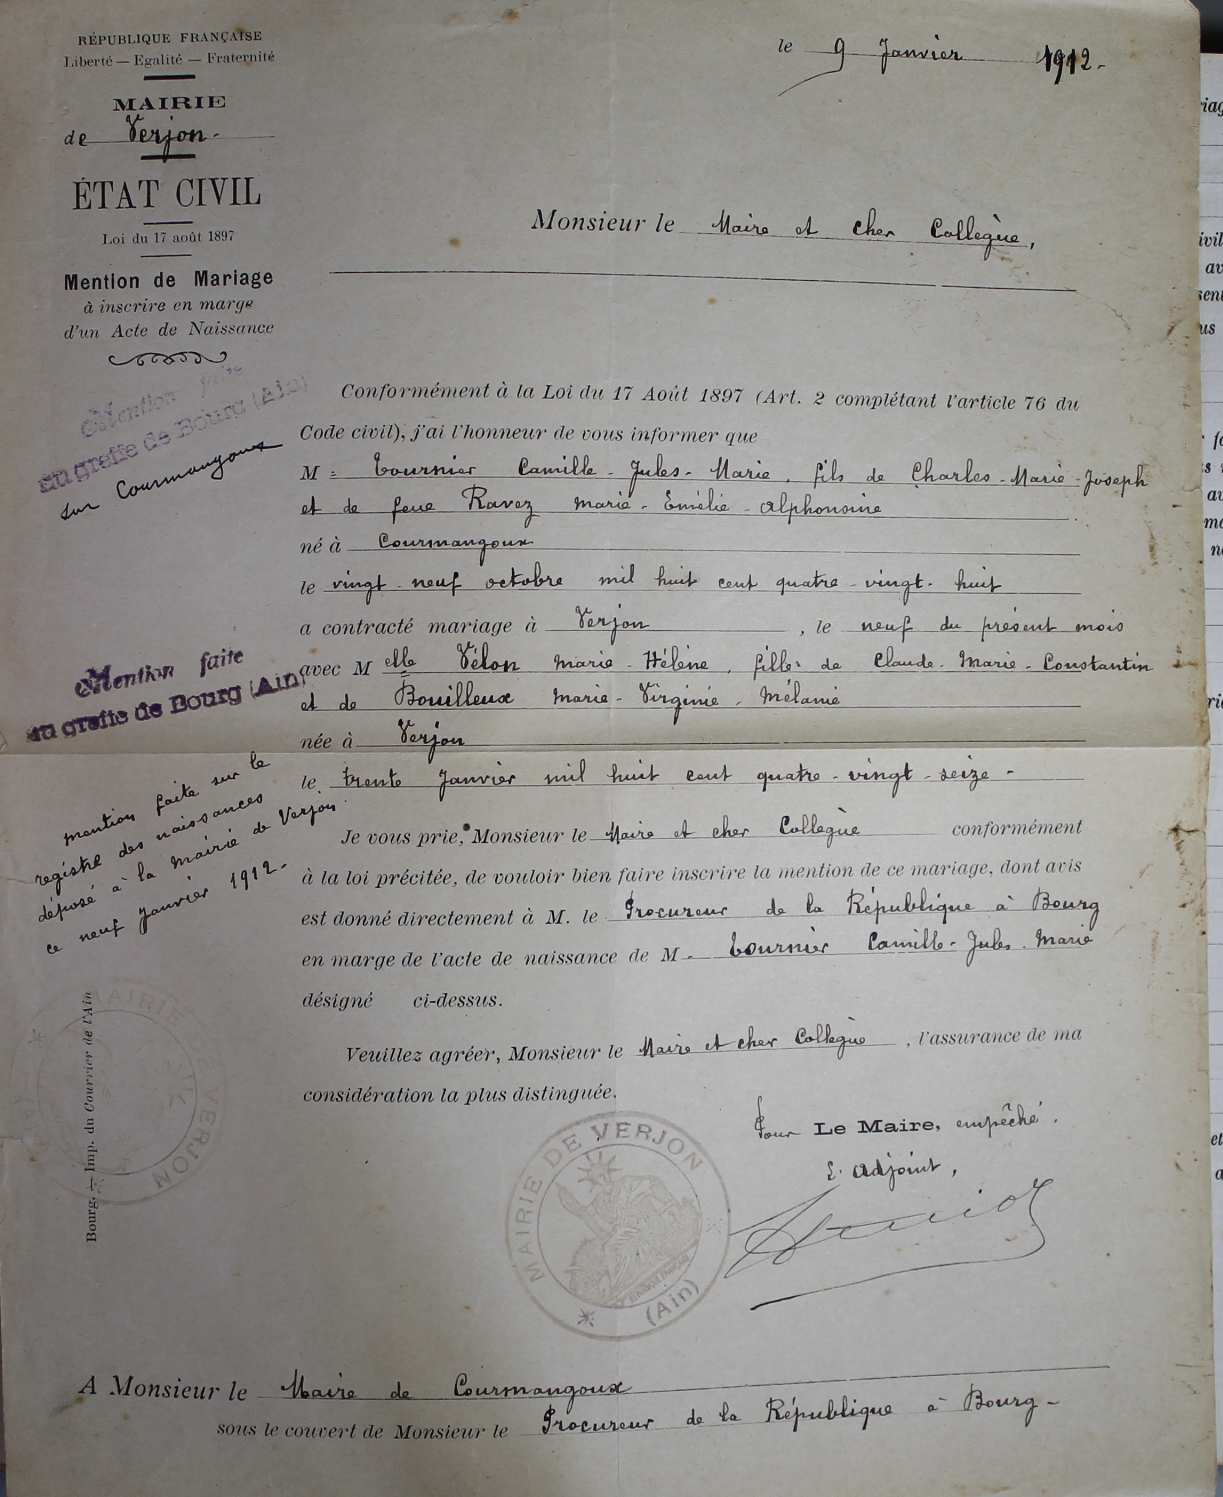 RÉPUBLIQUE FRANÇAISE
Liberté — Egalité — Fraternité
MAIRIE
de Verjon -
ÉTAT CIVIL
Loi du 17 août 1897
Mention de Mariage
à inscrire en marge
d'un Acte de Naissance
Mention faite
au greffe de Bourg (Ain)
sur Courmangoux
Mention faite
au greffe de Bourg (Ain)
mention faite sur le
registre des naissances
déposé à la mairie de Verjon
ce neuf Janvier 1912 -
MAIRIE DE VERJON
Bourg. — Imp. du Courrier de l'Ain
le 9 Janvier 1912 -
Monsieur le Maire et cher Collegùe,
Conformément à la Loi du 17 Août 1897 (Art. 2 complétant l'article 76 du
Code civil), j'ai l'honneur de vous informer que
M = Tournier Camille - Jules - Marie, fils de Charles - Marie - Joseph
et de feue Ravez Marie - Emélie - Alphonsine
né à Courmangoux
le vingt - neuf octobre mil huit cent quatre - vingt - huit
a contracté mariage à Verjon, le neuf du présent mois
avec M elle Vélon Marie - Hélène, fille de Claude - Marie - Constantin
et de Bouilleux Marie - Virginie - Mélanie
née à Verjon
le trente Janvier mil huit cent quatre - vingt - seize -
Je vous prie, Monsieur le Maire et cher Collegùe conformément
à la loi précitée, de vouloir bien faire inscrire la mention de ce mariage, dont avis
est donné directement à M. le Procureur de la République à Bourg
en marge de l'acte de naissance de M - Tournier Camille - Jules - Marie
désigné ci-dessus.
Veuillez agréer, Monsieur le Maire et cher Collegùe, l'assurance de ma
considération la plus distinguée.
Pour Le Maire, empêché.
L'adjoint,
MAIRIE DE VERJON
(Ain)
A Monsieur le Maire de Courmangoux
sous le couvert de Monsieur le Procureur de la République à Bourg -